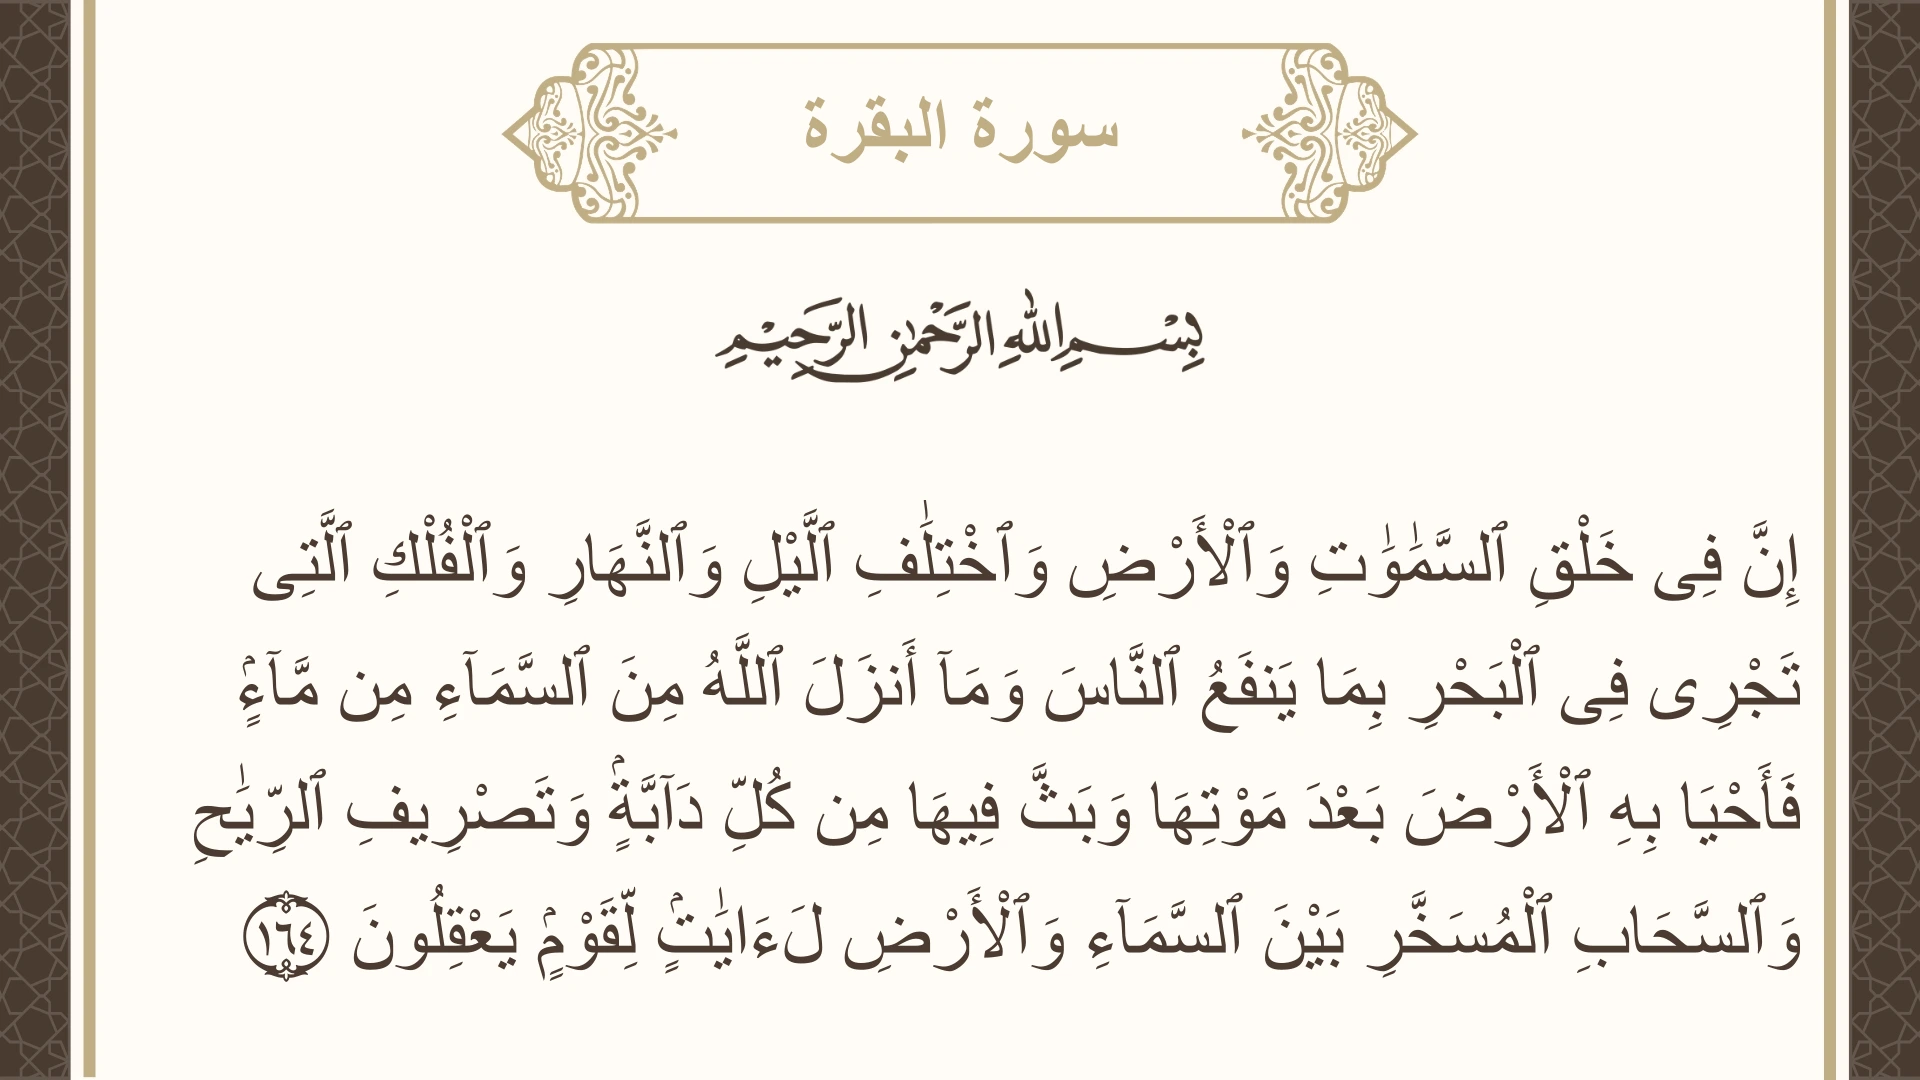 سورة البقرة
بِسْمِ اللهِ الرَّحْمٰنِ الرَّحِيْمِ
إِنَّ فِى خَلْقِ ٱلسَّمَٰوَٰتِ وَٱلْأَرْضِ وَٱخْتِلَٰفِ ٱلَّيْلِ وَٱلنَّهَارِ وَٱلْفُلْكِ ٱلَّتِى
تَجْرِى فِى ٱلْبَحْرِ بِمَا يَنفَعُ ٱلنَّاسَ وَمَآ أَنزَلَ ٱللَّهُ مِنَ ٱلسَّمَآءِ مِن مَّآءٍۢ
فَأَحْيَا بِهِ ٱلْأَرْضَ بَعْدَ مَوْتِهَا وَبَثَّ فِيهَا مِن كُلِّ دَآبَّةٍۢ وَتَصْرِيفِ ٱلرِّيَٰحِ
وَٱلسَّحَابِ ٱلْمُسَخَّرِ بَيْنَ ٱلسَّمَآءِ وَٱلْأَرْضِ لَءَايَٰتٍۢ لِّقَوْمٍۢ يَعْقِلُونَ ١٦٤